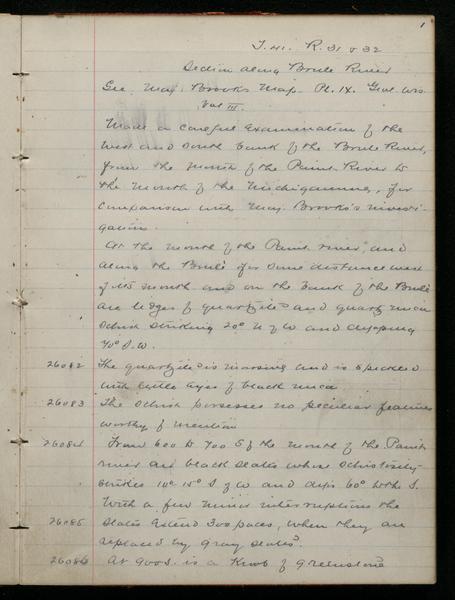 1
T. 41. R. 31 & 32
Section along Brule River
See Maj. Brooks Map. Pl. IX. Geol. Wis.
Vol III.
Made a careful examination of the
West and South bank of the Brule River,
from the Mouth of the Paint River to
the Mouth of the Michigamme, for
Comparison with Maj. Brooks's investi-
gation.
At the mouth of the Paint river, and
along the Brule for some distance west
of its mouth and on the bank of the Brule
are ledges of quartzite and quartz mica
schist striking 20° N of W and dipping
70° S.W.
26082 The quartzite is massive and is speckled
with little eyes of black mica
26083 The schist possesses no peculiar features
worthy of mention
26084 From 600 to 700 S of the mouth of the Paint
river are black slates whose schistosity
strikes 10°-15° S of W and dips 60° to the S.
With a few minor interruptions the
26085 slates extend 300 paces, when they are
replaced by gray slates.
26086 At 900 S. is a Knob of Greenstone